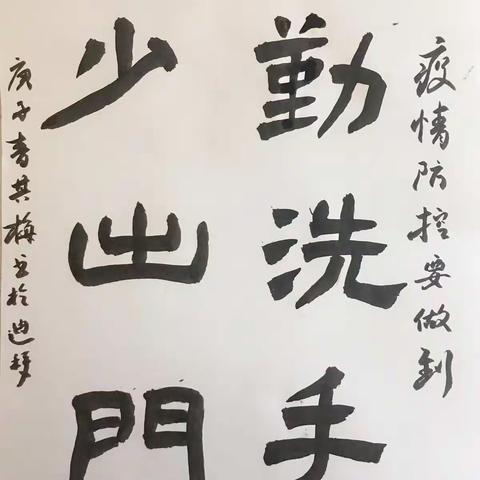 疫情防控要做到
勤洗手
少出門
庚子春其梅书於迪拜